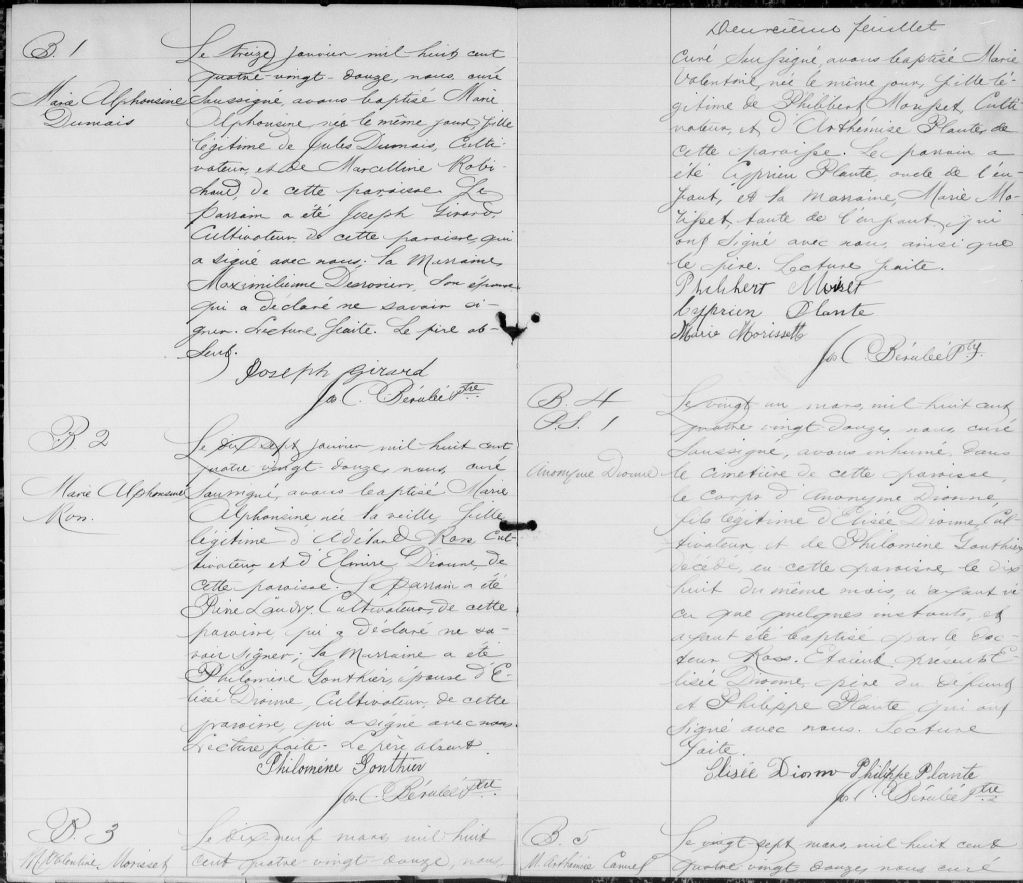 B. 1
Marie Alphonsine
Dumais
Le treize janvier mil huit cent
quatre-vingt-douze, nous, curé
soussigné, avons baptisé Marie
Alphonsine née le même jour, fille
légitime de Jules Dumais, Culti-
vateur, et de Marcelline Robi-
chaud, de cette paroisse. Le
Parrain a été Joseph Girard,
Cultivateur de cette paroisse, qui
a signé avec nous; la Marraine,
Maximilienne Desrosiers, son épouse
qui a déclaré ne savoir si-
gner. Lecture faite. Le père ab-
sent.
Joseph Girard
Jos C. Bérubé Ptre
B. 2
Marie Alphonsine
Ross.
Le dix sept janvier mil huit cent
quatre vingt douze, nous, curé
soussigné, avons baptisé Marie
Alphonsine née la veille, fille
légitime d'Adélard Ross, Cul-
tivateur et d'Elmire Dionne, de
cette paroisse. Le Parrain a été
Pierre Landry, Cultivateur, de cette
paroisse, qui a déclaré ne sa-
voir signer; la Marraine a été
Philomène Gonthier, épouse d'E-
lisée Dionne, Cultivateur, de cette
paroisse, qui a signé avec nous.
Lecture faite. Le père absent.
Philomène Gonthier
Jos C. Bérubé Ptre
B. 3
M. Valentine Morisset
Le dix neuf mars, mil huit
cent quatre-vingt-douze, nous,
Deuxième feuillet
curé soussigné, avons baptisé Marie
Valentine, née le même jour, fille lé-
gitime de Philibert Mousset, Culti
vateur, et d'Arthémise Plante, de
cette paroisse. Le parrain a
été Cyprien Plante, oncle de l'en-
fant, et la marraine, Marie Mo-
risset, tante de l'enfant, qui
ont signé avec nous, ainsi que
le père. Lecture faite.
Philibert
Cyprien Plante
Marie Morissette
Jos C. Bérubé Ptre.
B. 4
P.S. 1
Anonyme Dionne
Le vingt un mars, mil huit cent
quatre vingt-douze, nous, curé
soussigné, avons inhumé, dans
le cimetière de cette paroisse,
le corps d'Anonyme Dionne,
fils légitime d'Elisée Dionne, Cul-
tivateur et de Philomène Gonthier
décédé, en cette paroisse, le dix
huit du même mois, n'ayant vé
cu que quelques instants, et
ayant été baptisé par le Doc-
teur Ross. Etaient présents E-
lisée Dionne, père du défunt
et Philippe Plante qui ont
signé avec nous. Lecture
faite.
Elisée Dionne Philippe Plante
Jos C. Bérubé Ptre
B. 5
M. Arthémise
Le vingt sept mars, mil huit cent
quatre vingt douze, nous curé